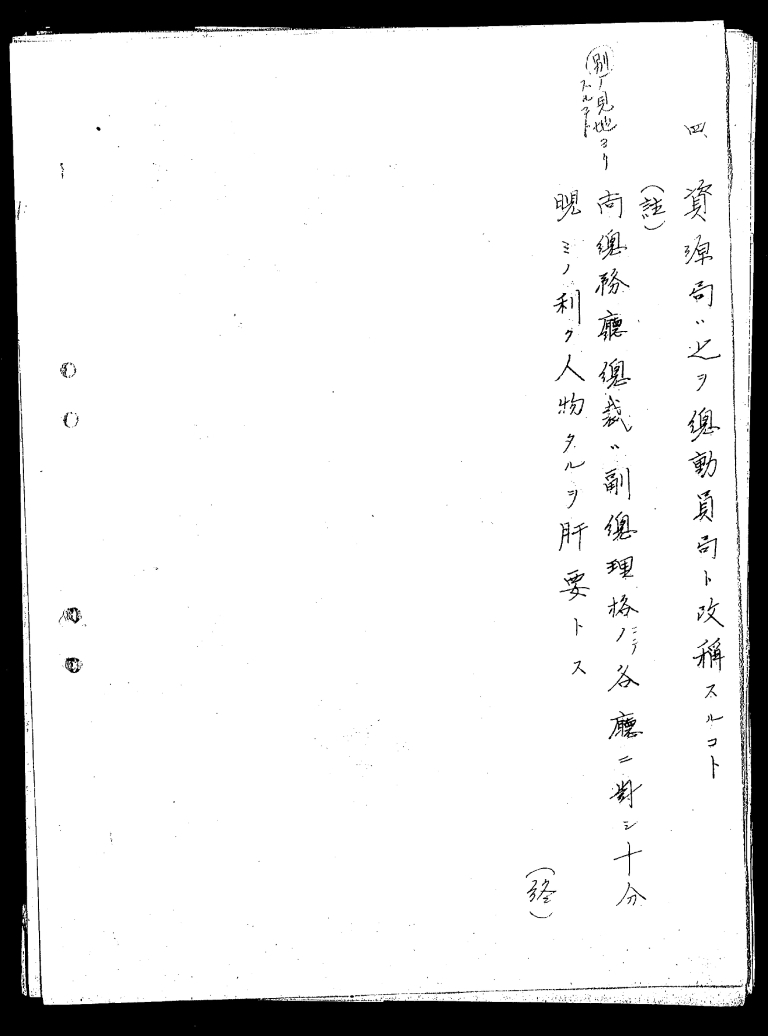 四、資源局ハ之ヲ總動員局ト改稱スルコト
(註)
尚總務廳總裁ハ副總理格ノニテ各廳ニ對シ十分
睨ミノ利ク人物タルヲ肝要トス
別ノ見地ヨリ
スルコト
(終)